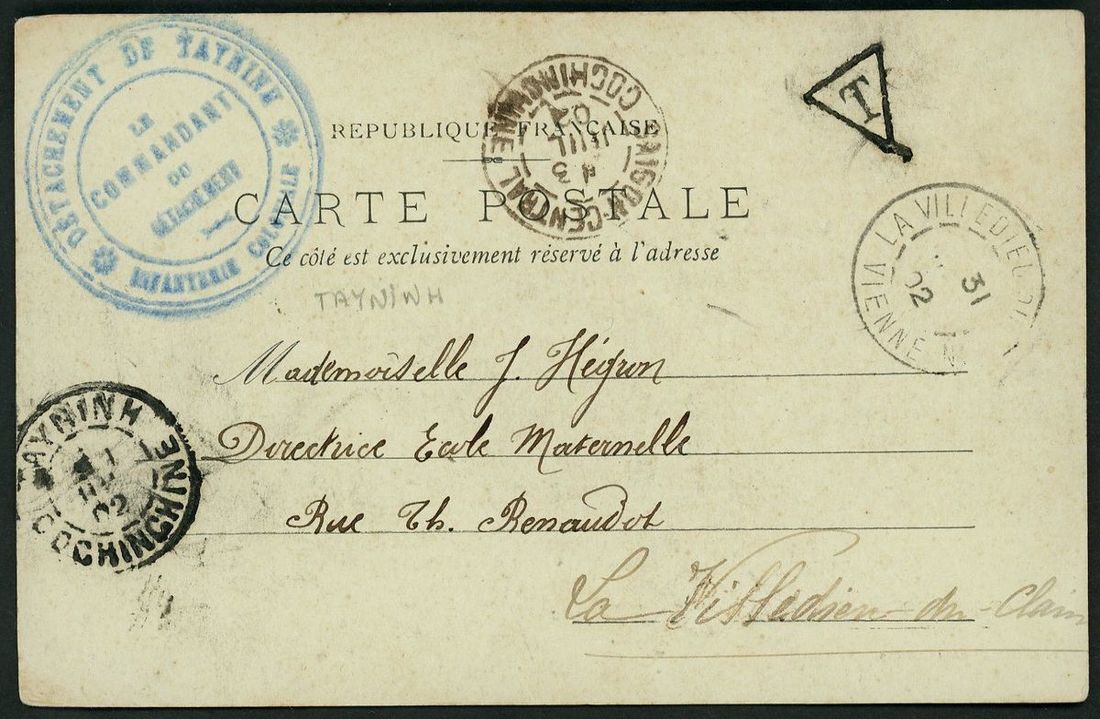 DÉTACHEMENT DE TAYNINH
LE
COMMANDANT
DU
DÉTACHEMENT
INFANTERIE COLONIALE
SAIGON-CENTRAL
COCHINCHINE
02
T
REPUBLIQUE FRANÇAISE
CARTE POSTALE
Ce côté est exclusivement réservé à l'adresse
TAYNINH
LA VILLEDIEU-DU
31
02
VIENNE
Mademoiselle J. Hégron
Directrice Ecole Maternelle
Rue Th. Renaudot
La Villedieu-du-Clain
TAYNINH
02
COCHINCHINE